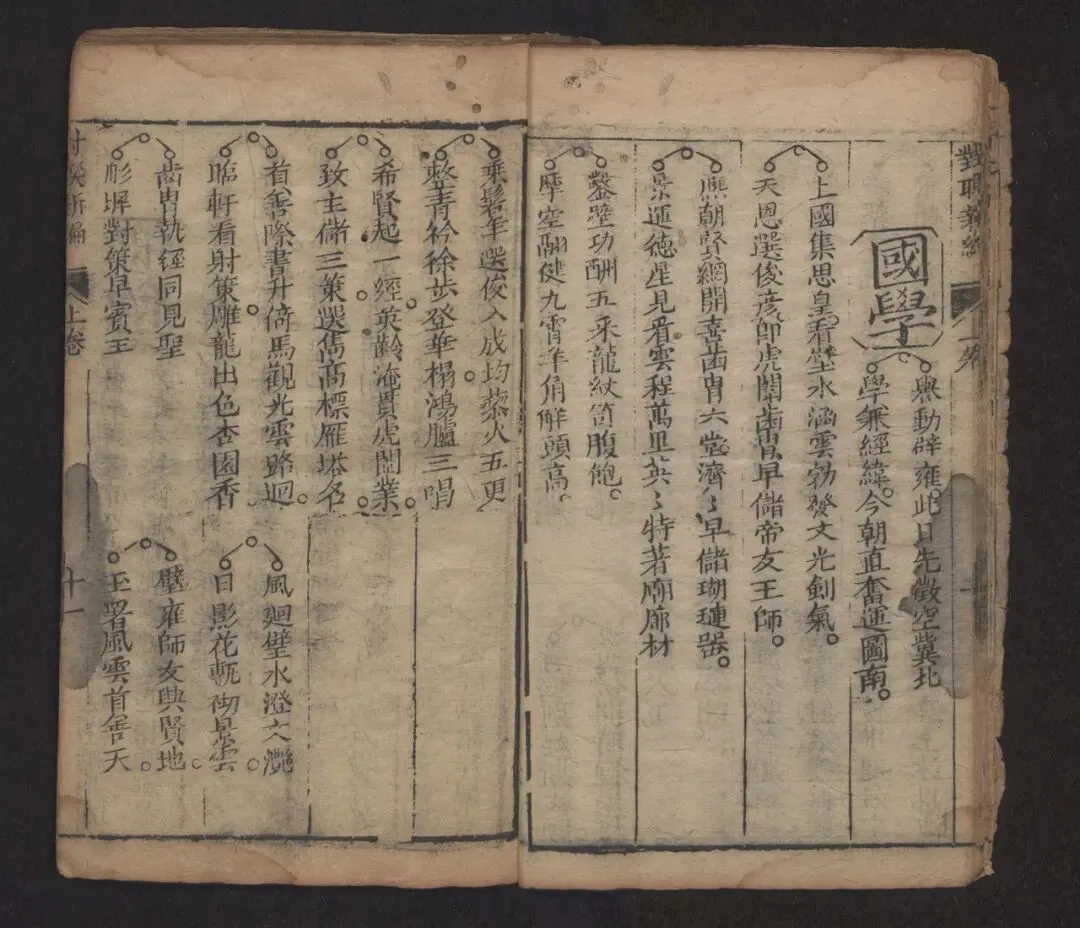 國學
譽動辟雍此日先徵空冀北
學兼經緯今朝直奮運圖南
上國集思皇看璧水涵雲勃發文光劍氣
天恩選俊彥卽虎闈齒胄早儲帝友王師
熙朝賢網開喜齒胄六堂濟〻早儲瑚璉器
景運德星見看雲程萬里英〻特著廟廊材
鏨壁功酬五采龍紋笥腹飽
摩空翮健九霄羊角解頭高
乘髫年選俊入成均藜火五更
整青衿徐步登華榻鴻臚三唱
希賢起一經英齡淹貫虎闈業
致主儲三策選雋高標雁塔名
首善際書升倚馬觀光雲路迥
臨軒看射策雕龍出色杏園香
齒胄執經同見聖
彤墀對策早賓王
風廻璧水澄文灔
日影花甎礽景雲
璧雍師友與賢地
玉署風雲首善天
上卷
十一